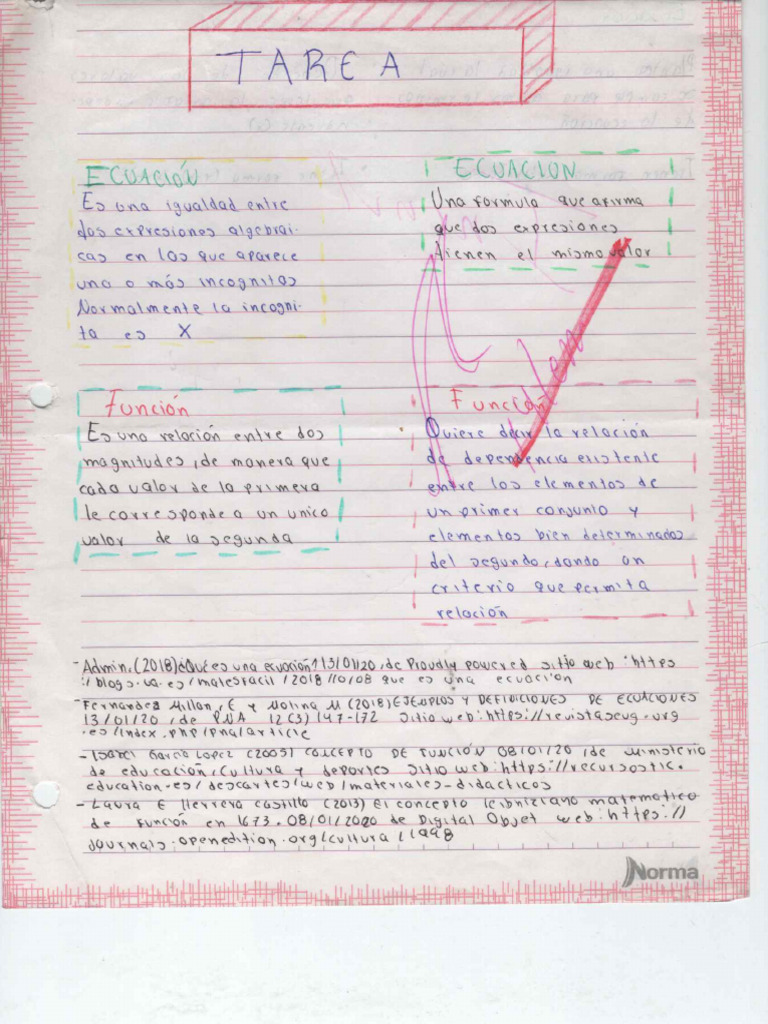 TAREA
ECUACIÓN
Es una igualdad entre
dos expresiones algebrai-
cas en las que aparece
una o más incognitas
Normalmente la incogni-
ta es X
ECUACION
Una formula que afirma
que dos expresiones
tienen el mismo valor
Función
Es una relación entre dos
magnitudes, de manera que
cada valor de la primera
le corresponde a un unico
valor de la segunda
Función
Quiere decir la relación
de dependencia existente
entre los elementos de
un primer conjunto y
elementos bien determinados
del segundo, dando un
criterio que permita
relación
- Admin. (2018) ¿Qué es una ecuación? 13/01/20, de Proudly powered sitio web: https
://blogs.ua.es/matesfacil/2018/10/08 que es una ecuación
- Fernandez Millan, E y Molina M (2018) EJEMPLOS Y DEFINICIONES DE ECUACIONES
13/01/20, de PNA 12(3) 147-172 Sitio web: https://revistaseug.ugr
.es/index.php/pna/article
- Isabel García Lopez (2005) CONCEPTO DE FUNCIÓN 08/01/20, de ministerio
de educación, cultura y deportes Sitio web: https://recursostic.
education.es/descartes/web/materiales-didacticos
- Laura E Herrera Castillo (2013) El concepto leibniziano matematico
de Función en 1673. 08/01/2020 de Digital Objet web: https://
journals.openedition.org/cultura/1998
Norma